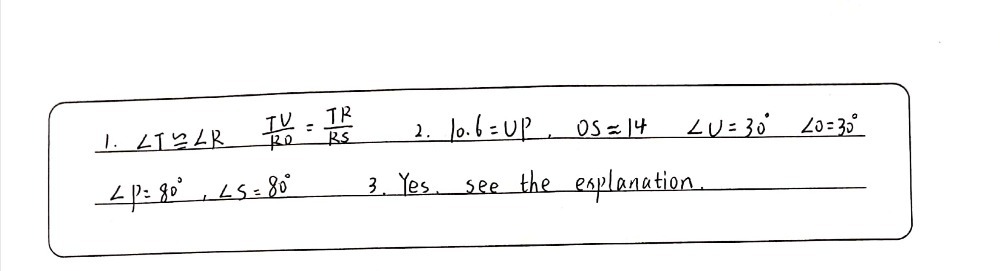 1. ∠T ≅ ∠R TU/RO = TR/RS 2. 10.6 = UP, OS ≈ 14 ∠U = 30° ∠O = 30°
∠P = 80°, ∠S = 80° 3. Yes. see the explanation.